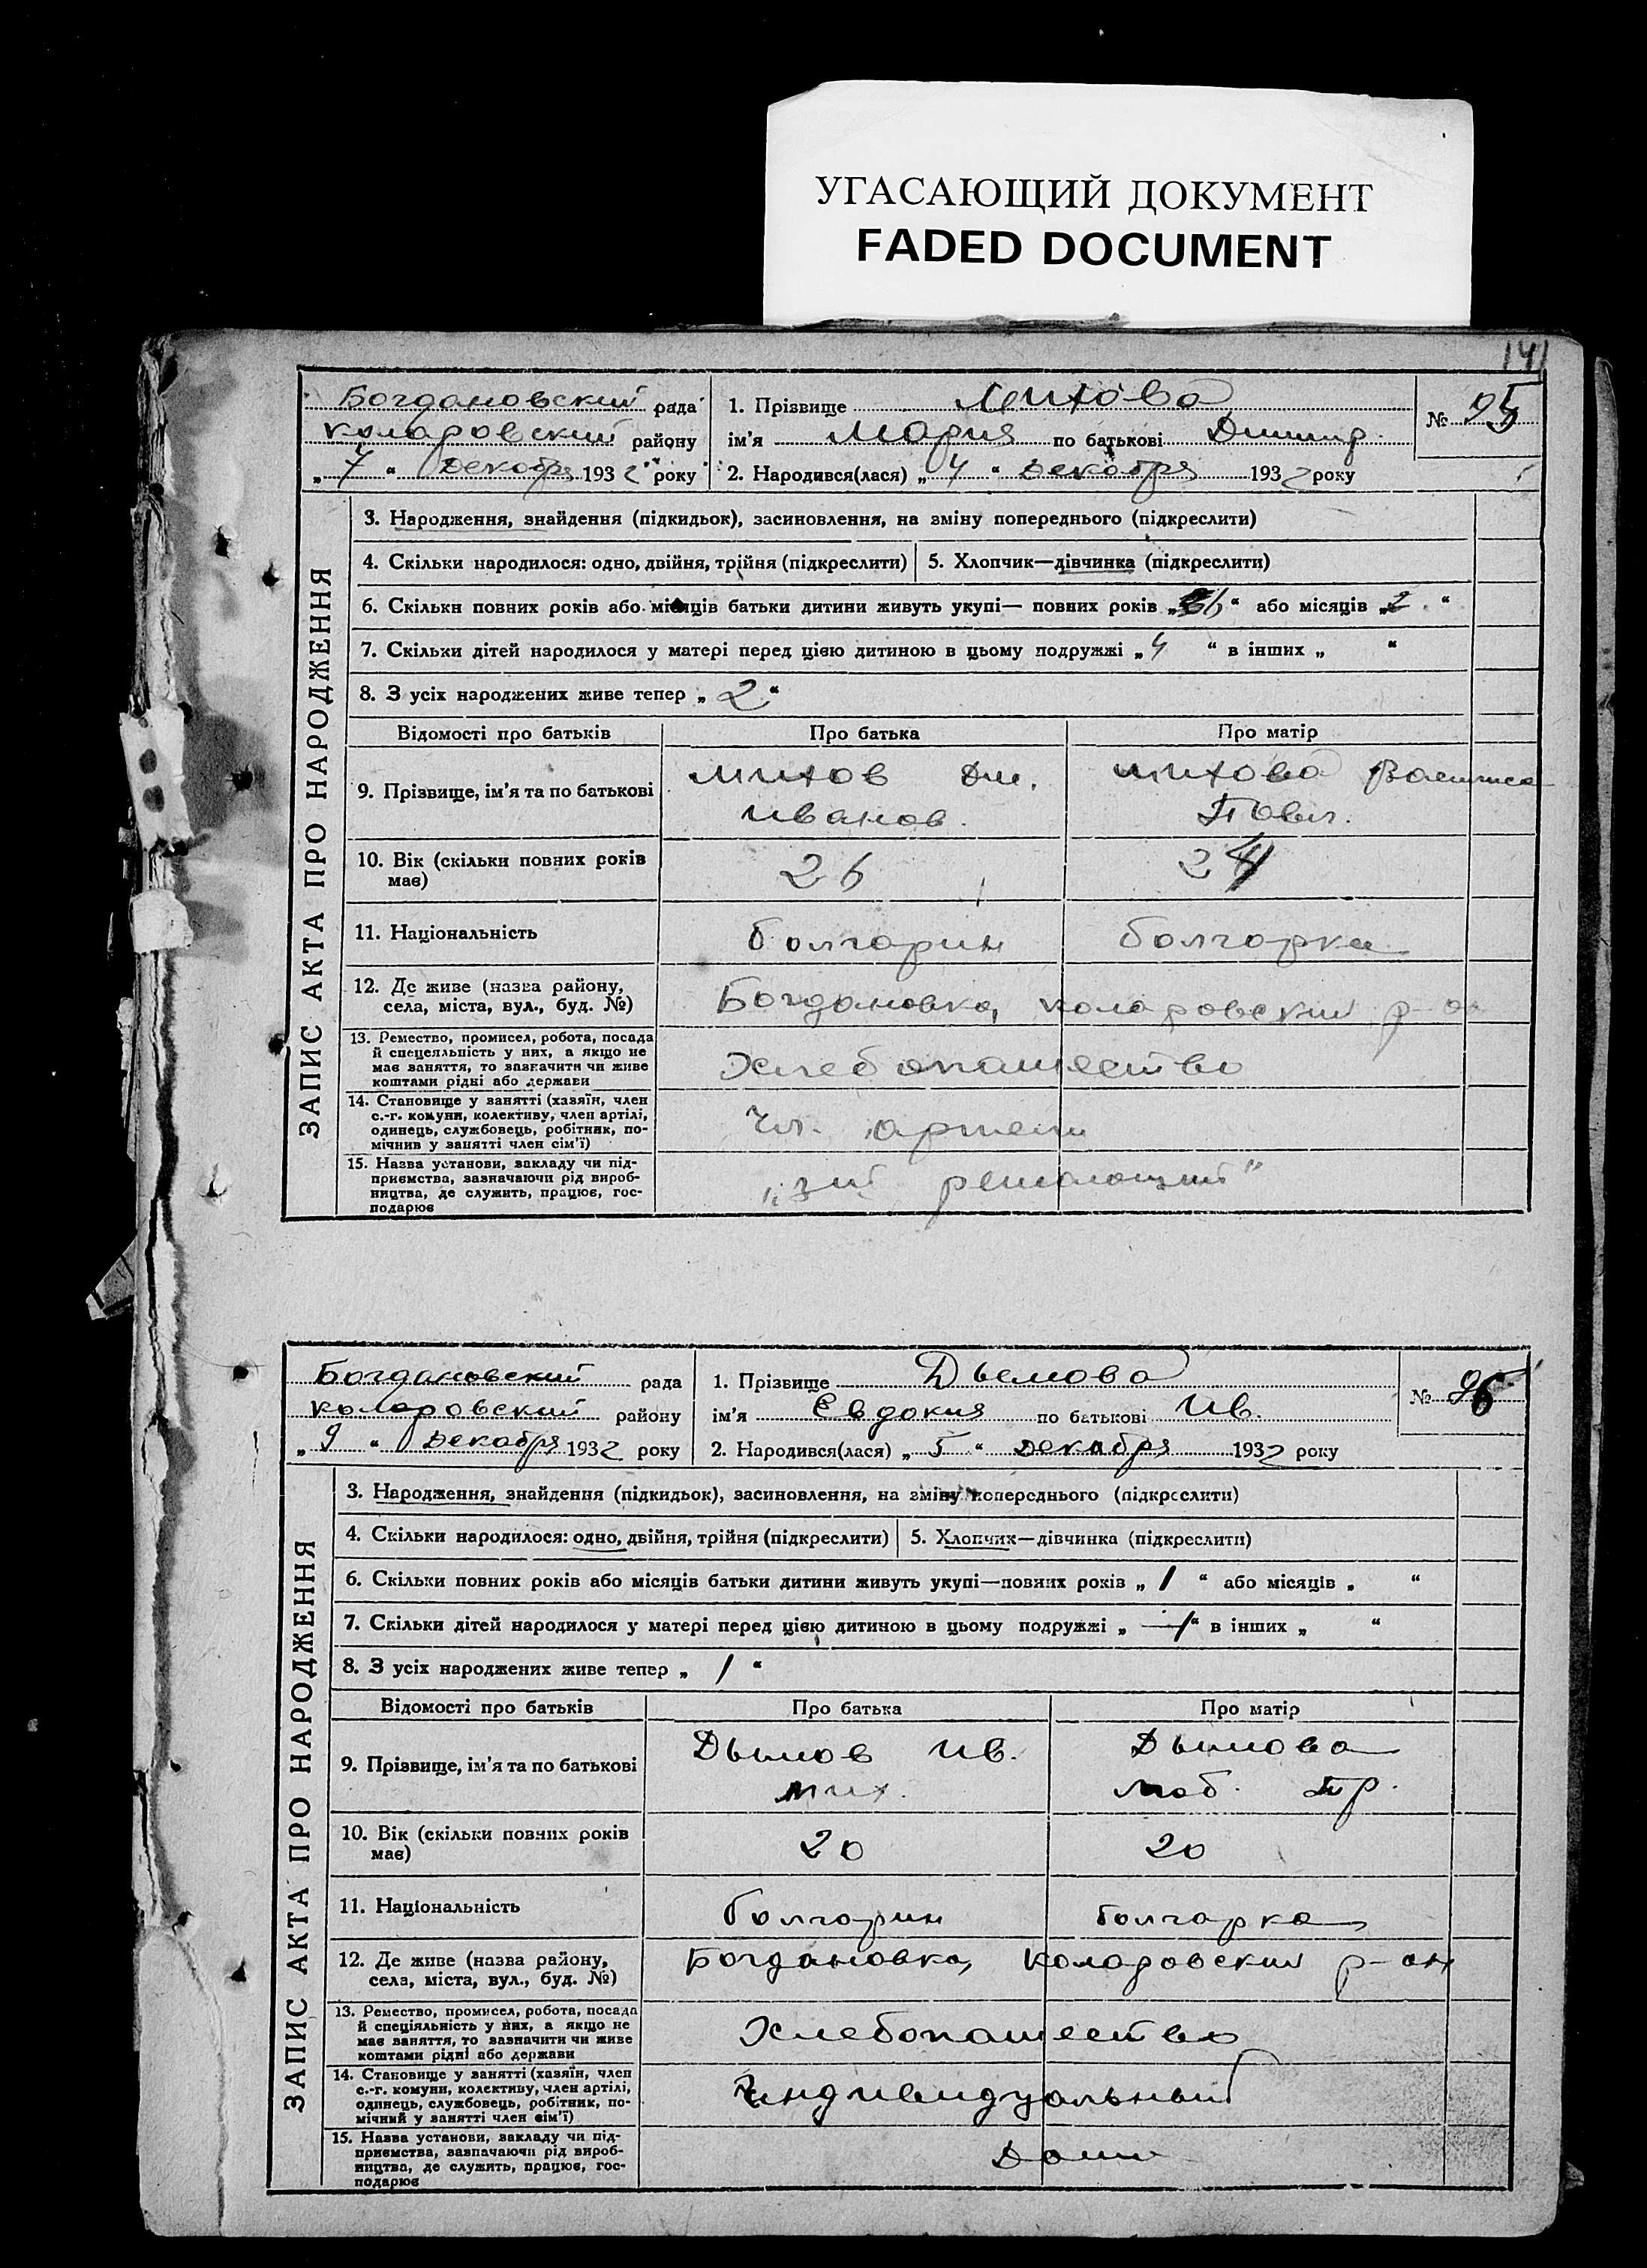 УГАСАЮЩИЙ ДОКУМЕНТ
FADED DOCUMENT
141
Богдановский рада
Коларовский району
„7“ Декабря 1932 року
1. Прізвище Митова
ім'я Мария по батькові Димитр.
2. Народився(лася) „4“ Декабря 1932 року
№ 95
ЗАПИС АКТА ПРО НАРОДЖЕННЯ
3. Народження, знайдення (підкидьок), засиновлення, на зміну попереднього (підкреслити)
4. Скільки народилося: одно, двійня, трійня (підкреслити) 5. Хлопчик—дівчинка (підкреслити)
6. Скільки повних років або місяців батьки дитини живуть укупі— повних років „ “ або місяців „2“
7. Скільки дітей народилося у матері перед цією дитиною в цьому подружжі „4“ в інших „ “
8. З усіх народжених живе тепер „2“
Відомості про батьків Про батька Про матір
9. Прізвище, ім'я та по батькові
Митов Дм.
Иванов.
Митова
Павл.
10. Вік (скільки повних років має)
26
24
11. Національність
болгарин
болгарка
12. Де живе (назва району,
села, міста, вул., буд. №)
Богдановка, Коларовский р-он
13. Ремество, промисел, робота, посада
й спецеяльність у них, а якщо не
має заняття, то зазначити чи живе
коштами рідні або держави
Хлебопашество
14. Становище у занятті (хазяїн, член
с.-г. комуни, колективу, член артілі,
одинець, службовець, робітник, по-
мічник у занятті член сім'ї)
Чл. артели
15. Назва установи, закладу чи під-
приємства, зазначаючи рід вироб-
ництва, де служить, працює, гос-
подарює
„3ий решающий“
Богдановский рада
Коларовский району
„9“ Декабря 1932 року
1. Прізвище Дымова
ім'я Евдокия по батькові Ив.
2. Народився(лася) „5“ Декабря 1932 року
№ 96
ЗАПИС АКТА ПРО НАРОДЖЕННЯ
3. Народження, знайдення (підкидьок), засиновлення, на зміну попереднього (підкреслити)
4. Скільки народилося: одно, двійня, трійня (підкреслити) 5. Хлопчик—дівчинка (підкреслити)
6. Скільки повних років або місяців батьки дитини живуть укупі—повних років „1“ або місяців „ “
7. Скільки дітей народилося у матері перед цією дитиною в цьому подружжі „—“ в інших „ “
8. З усіх народжених живе тепер „1“
Відомості про батьків Про батька Про матір
9. Прізвище, ім'я та по батькові
Дымов Ив.
Мих.
Дымова
Люб. Пр.
10. Вік (скільки повних років має)
20
20
11. Національність
болгарин
болгарка
12. Де живе (назва району,
села, міста, вул., буд. №)
Богдановка, Коларовский р-он
13. Ремество, промисел, робота, посада
й спеціяльність у них, а якщо не
має заняття, то зазначити чи живе
коштами рідні або держави
Хлебопашество
14. Становище у занятті (хазяїн, член
с.-г. комуни, колективу, член артілі,
одинець, службовець, робітник, по-
мічний у занятті член сім'ї)
Индивидуальный
15. Назва установи, закладу чи під-
приємства, зазначаючи рід вироб-
ництва, де служить, працює, гос-
подарює
Дома